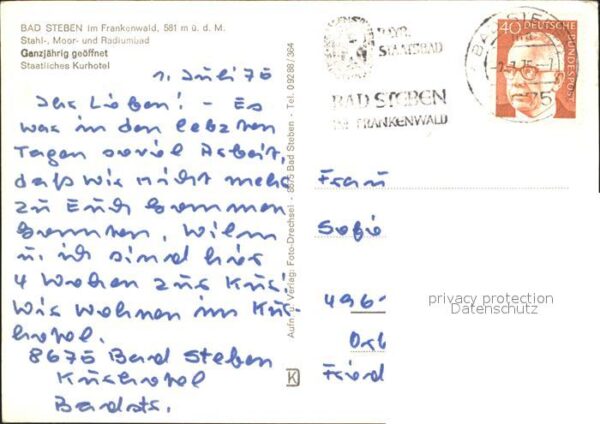 BAD STEBEN im Frankenwald, 581 m ü. d. M.
Stahl-, Moor- und Radiumbad
Ganzjährig geöffnet
Staatliches Kurhotel
1. Juli 75
Ihr Lieben! - Es
war in den letzten
Tagen soviel Arbeit,
daß wir nicht mehr
zu Euch kommen
konnten. Wilm
u. ich sind hier
4 Wochen zur Kur!
Wir wohnen im Kur-
hotel.
8675 Bad Steben
Kurhotel
Badstr.
Aufn. u. Verlag: Foto-Drechsel - 8675 Bad Steben - Tel. 09288/364
K
BAYR.
STAATSBAD
BAD STEBEN
IM FRANKENWALD
BAD STE
75
40
DEUTSCHE
BUNDESPOST
Frau
Sofie
496
privacy protection
Datenschutz
Fried